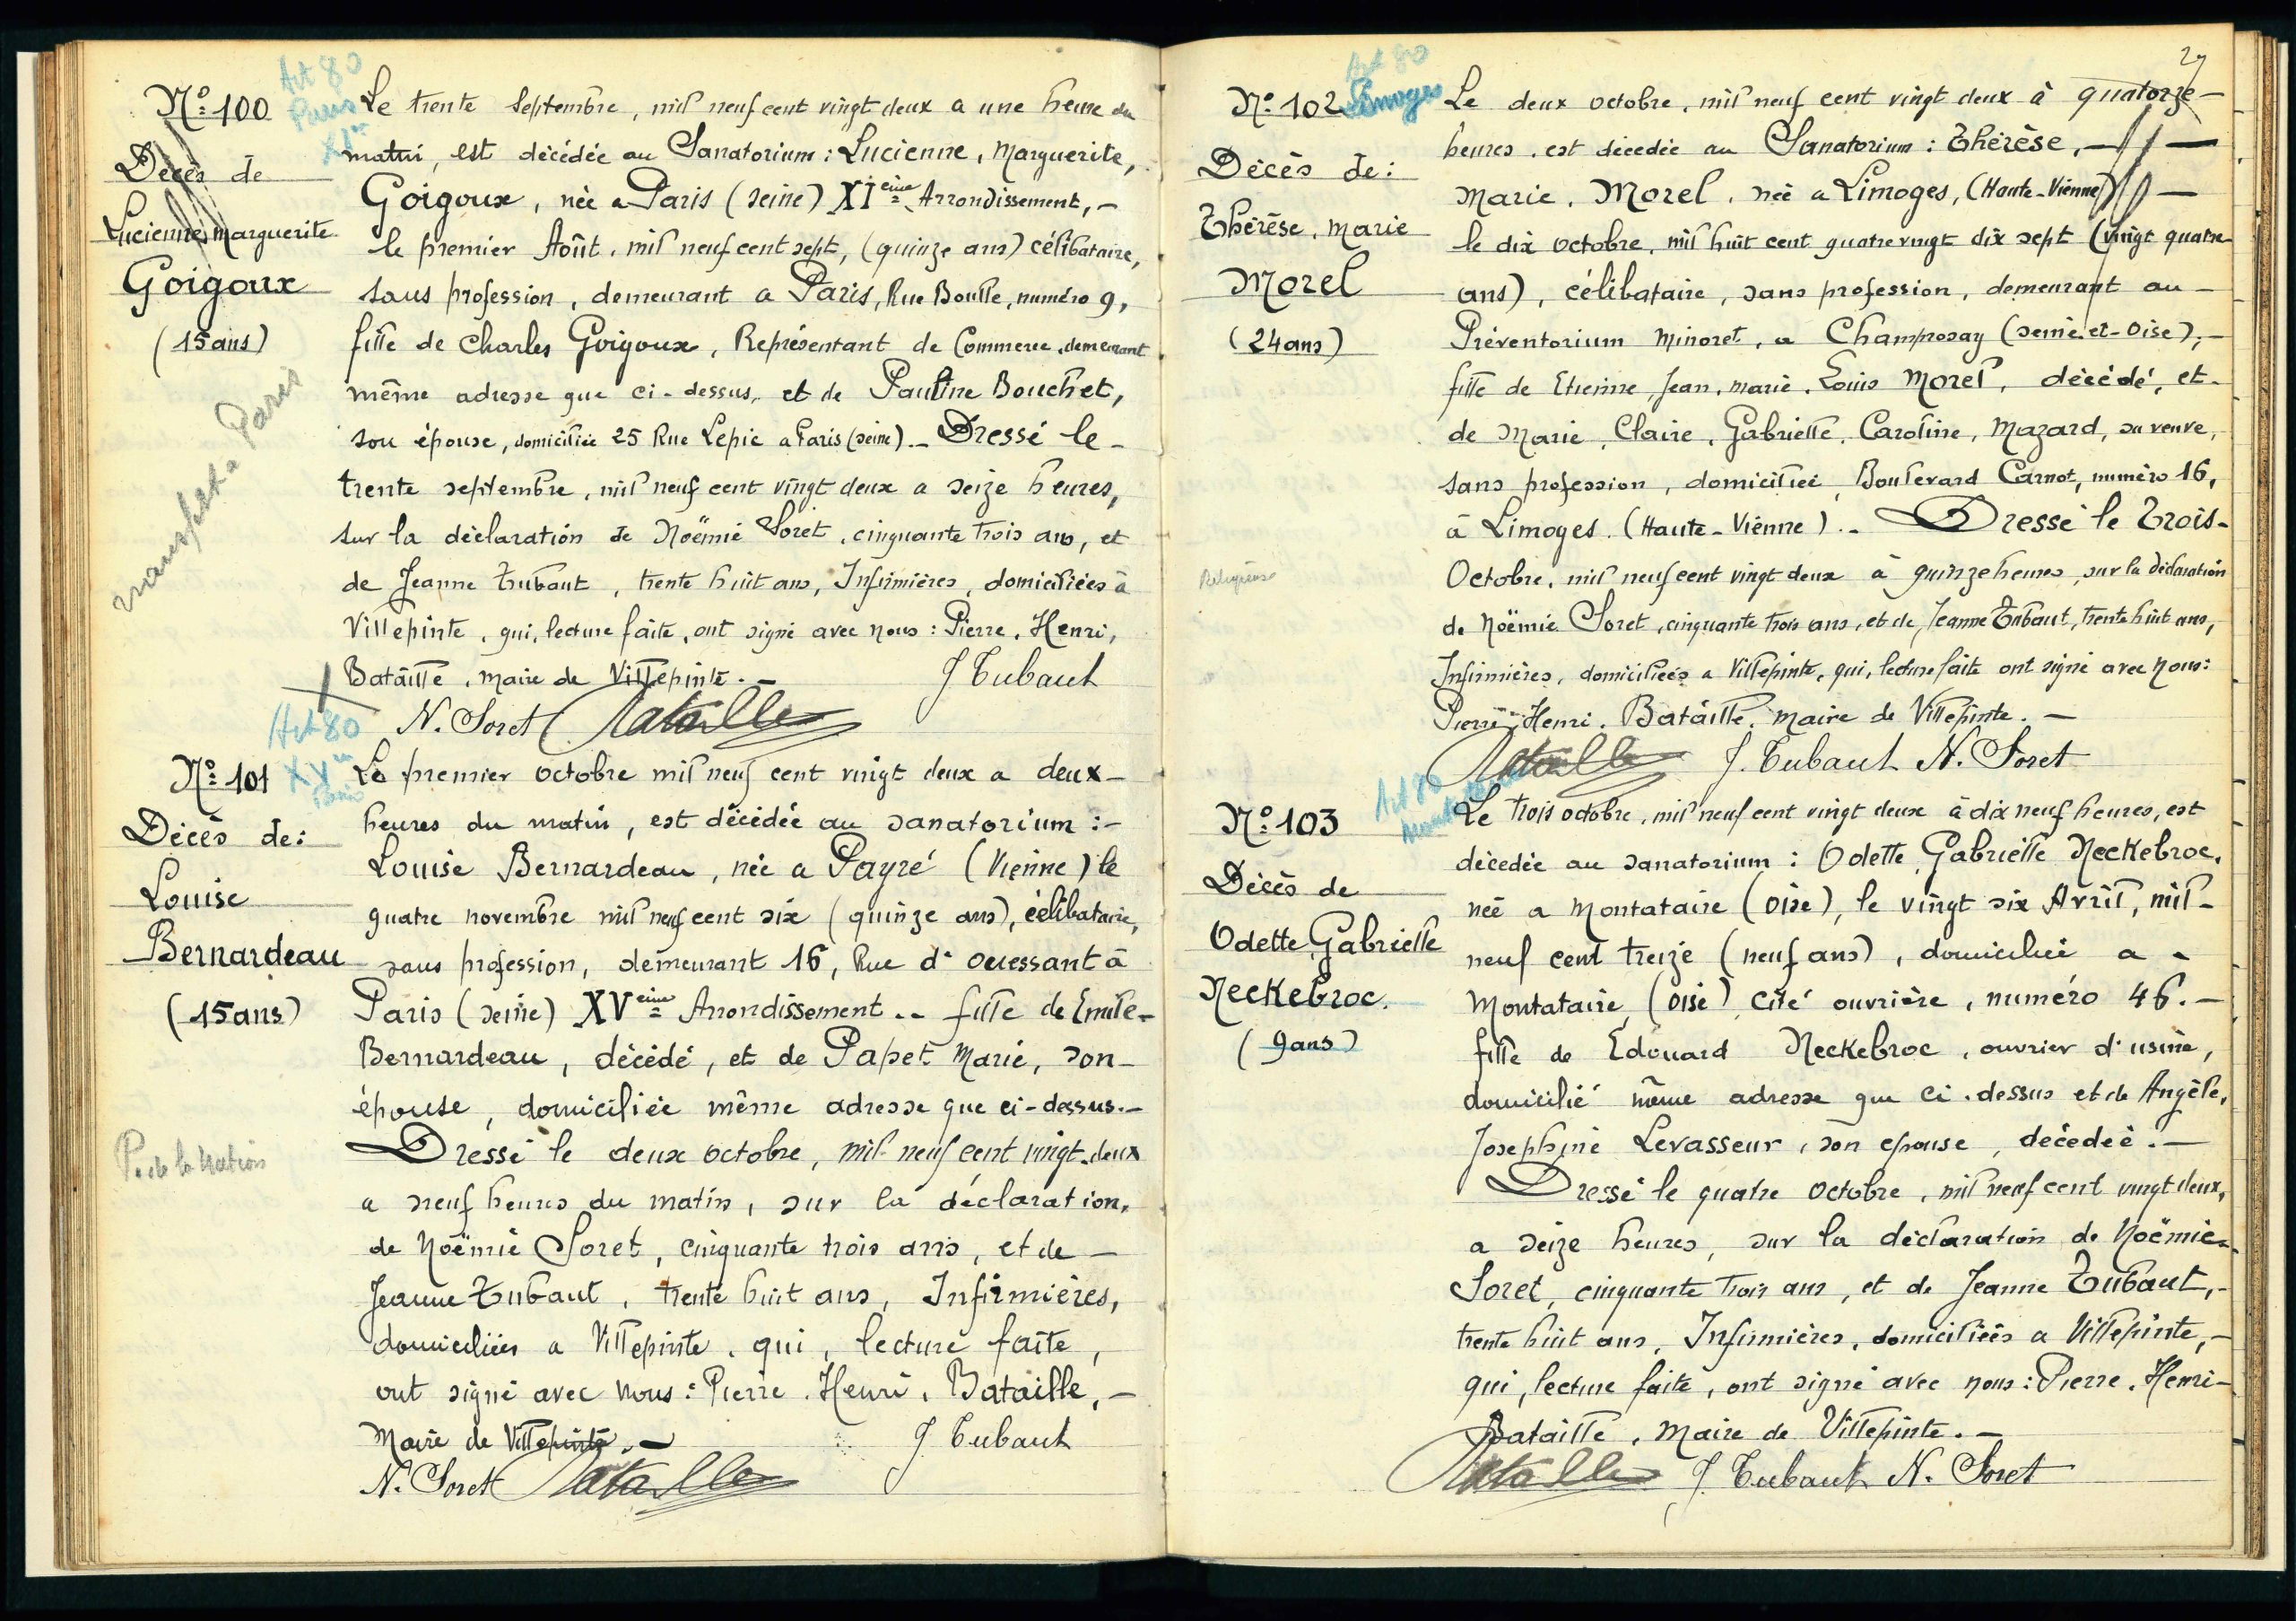 Nº 100
Art 80
Paris
XIe
Décès de
Lucienne, Marguerite
Goigoux
(15 ans)
transfert à Paris
Le trente Septembre, mil neuf cent vingt deux a une heure du
matin, est décédée au Sanatorium : Lucienne, Marguerite,
Goigoux, née a Paris (Seine) XIeme Arrondissement, -
le premier Août, mil neuf cent sept, (quinze ans) célibataire,
sans profession, demeurant a Paris, Rue Boulle, numéro 9,
fille de Charles Goigoux, Représentant de Commerce, demeurant
même adresse que ci-dessus, et de Pauline Bouchet,
son épouse, domiciliée 25 Rue Lepic a Paris (Seine). - Dressé le -
trente septembre, mil neuf cent vingt deux a seize heures,
sur la déclaration de Noëmie Soret, cinquante trois ans, et
de Jeanne Tubaut, trente huit ans, Infirmières, domiciliées à
Villepinte, qui, lecture faite, ont signé avec nous : Pierre, Henri,
Bataille, maire de Villepinte. -
J Tubaut
N. Soret Bataille
Art 80
XVe
Paris
Nº 101
Décès de :
Louise
Bernardeau
(15 ans)
P. de la Nation
Le premier octobre mil neuf cent vingt deux a deux -
heures du matin, est décédée au sanatorium : -
Louise Bernardeau, née a Payré (Vienne) le
quatre novembre mil neuf cent six (quinze ans), célibataire,
sans profession, demeurant 16, Rue d'Ouessant à
Paris (Seine) XVeme Arrondissement .. fille de Emile -
Bernardeau, décédé, et de Papet Marie, son -
épouse, domiciliée même adresse que ci-dessus. -
Dressé le deux octobre, mil neuf cent vingt-deux
a neuf heures du matin, sur la déclaration,
de Noëmie Soret, cinquante trois ans, et de -
Jeanne Tubaut, trente huit ans, Infirmières,
domiciliées a Villepinte, qui, lecture faite,
ont signé avec nous : Pierre, Henri, Bataille, -
Maire de Villepinte. -
J Tubaut
N. Soret Bataille
27
Art 80
Limoges
Nº 102
Décès de :
Thérèse, Marie
Morel
(24 ans)
Religieuse
Le deux octobre, mil neuf cent vingt deux à quatorze -
heures, est décédée au Sanatorium : Thérèse, -
Marie, Morel, née a Limoges, (Haute-Vienne) -
le dix octobre, mil huit cent quatre vingt dix sept (vingt quatre
ans), célibataire, sans profession, demeurant au -
Préventorium Minoret, a Champrosay (Seine-et-Oise), -
fille de Etienne, Jean, Marie, Louis Morel, décédé, et -
de Marie, Claire, Gabrielle, Caroline, Mazard, sa veuve,
sans profession, domiciliée, Boulevard Carnot, numéro 16,
à Limoges. (Haute-Vienne). - Dressé le Trois -
Octobre, mil neuf cent vingt deux à quinze heures, sur la déclaration
de Noëmie Soret, cinquante trois ans, et de, Jeanne Tubaut, trente huit ans,
Infirmières, domiciliées a Villepinte, qui, lecture faite ont signé avec nous :
Pierre, Henri, Bataille, maire de Villepinte. -
Bataille J. Tubaut N. Soret
Art 80
Montataire
Nº 103
Décès de
Odette, Gabrielle
Neckebroc.
(9 ans)
Le trois octobre, mil neuf cent vingt deux à dix neuf heures, est
décédée au sanatorium : Odette, Gabrielle Neckebroc,
née a Montataire (Oise), le vingt six Avril, mil -
neuf cent treize (neuf ans), domiciliée a -
Montataire, (Oise) cité ouvrière, numéro 46. -
fille de Edouard Neckebroc, ouvrier d'usine,
domicilié même adresse que ci-dessus et de Angèle,
Josephine Levasseur, son epouse, décédée. -
Dressé le quatre Octobre, mil neuf cent vingt deux,
a seize heures, sur la déclaration de Noëmie -
Soret, cinquante trois ans, et de Jeanne Tubaut, -
trente huit ans, Infirmières, domiciliées a Villepinte, -
qui, lecture faite, ont signé avec nous : Pierre, Henri -
Bataille, Maire de Villepinte. -
Bataille J. Tubaut N. Soret